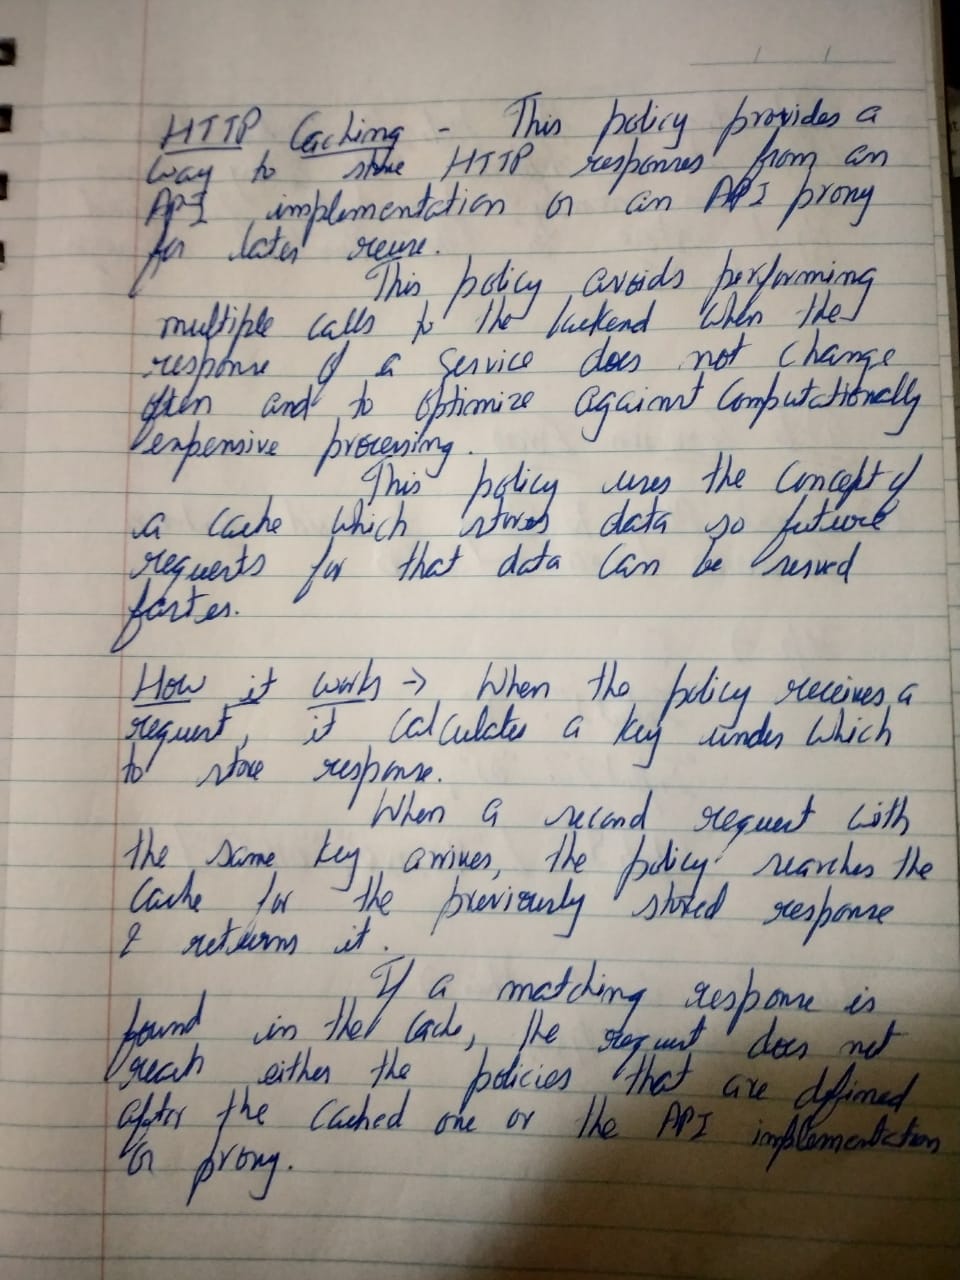 HTTP Caching - This policy provides a
way to store HTTP responses from an
API implementation or an API proxy
for later reuse.
This policy avoids performing
multiple calls to the backend when the
response of a service does not change
often and to optimize against computationally
expensive processing.
This policy uses the concept of
a cache which stores data so future
requests for that data can be served
faster.
How it works → When the policy receives a
request, it calculates a key under which
to store response.
When a second request with
the same key arrives, the policy searches the
cache for the previously stored response
& returns it.
If a matching response is
found in the cache, the request does not
reach either the policies that are defined
after the cached one or the API implementation
or proxy.